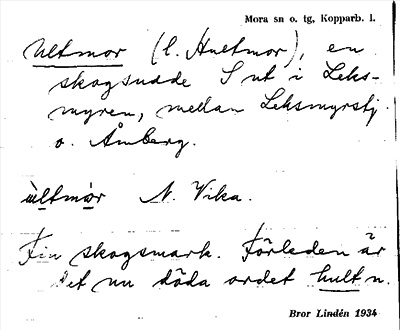 Mora sn o. tg, Kopparb. l.
Ultmor (l. Hultmor), en
skogsudde S ut i Leks-
myren, mellan Leksmyrstj.
o. Åmberg.
ùltmo̯r N. Vika.
Fin skogsmark. Förleden är
det nu döda ordet hult n.
Bror Lindén 1934